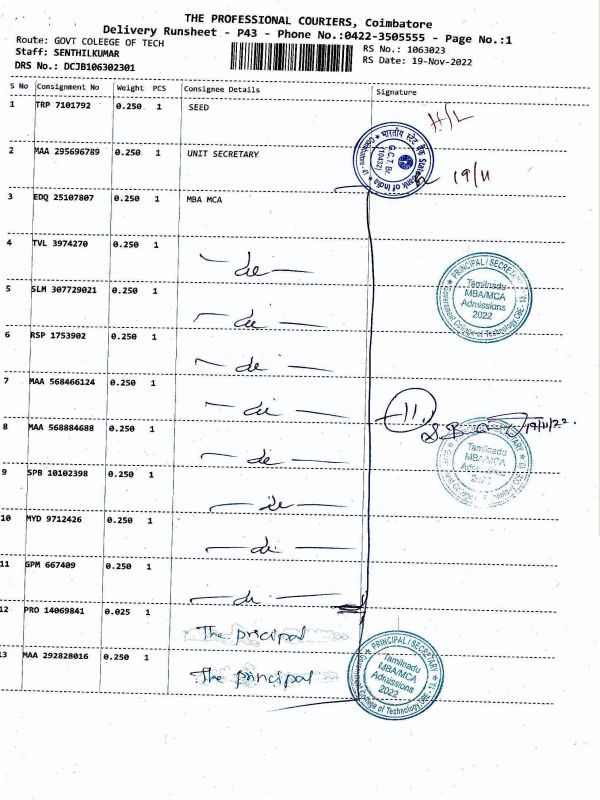 THE PROFESSIONAL COURIERS, Coimbatore
Delivery Runsheet - P43 - Phone No.:0422-3505555 - Page No.:1
Route: GOVT COLEEGE OF TECH
RS No.: 1063023
Staff: SENTHILKUMAR
RS Date: 19-Nov-2022
DRS No.: DCJB106302301
S No Consignment No Weight PCS Consignee Details Signature
1 TRP 7101792 0.250 1 SEED
H/L
2 MAA 295696789 0.250 1 UNIT SECRETARY
भारतीय स्टेट बैंक State Bank of India
G.C.T. Br.
(10432)
19/11
3 EDQ 25107807 0.250 1 MBA MCA
4 TVL 3974270 0.250 1 — do —
PRINCIPAL/SECRETARY
Tamilnadu
MBA/MCA
Admissions
2022
Government College of Technology CBE - 13
5 SLM 307729021 0.250 1 — do —
6 RSP 1753902 0.250 1 — do —
7 MAA 568466124 0.250 1 — do —
11.
19/11/22.
8 MAA 568884688 0.250 1 — do —
Tamilnadu
MBA/MCA
2022
9 SPB 10102398 0.250 1 — do —
10 MYD 9712426 0.250 1 — do —
11 GPM 667409 0.250 1 — do —
12 PRO 14069841 0.025 1 The pricipal
13 MAA 292828016 0.250 1 The principal
PRINCIPAL/SECRETARY
Tamilnadu
MBA/MCA
Admissions
2022
Government College of Technology CBE - 13